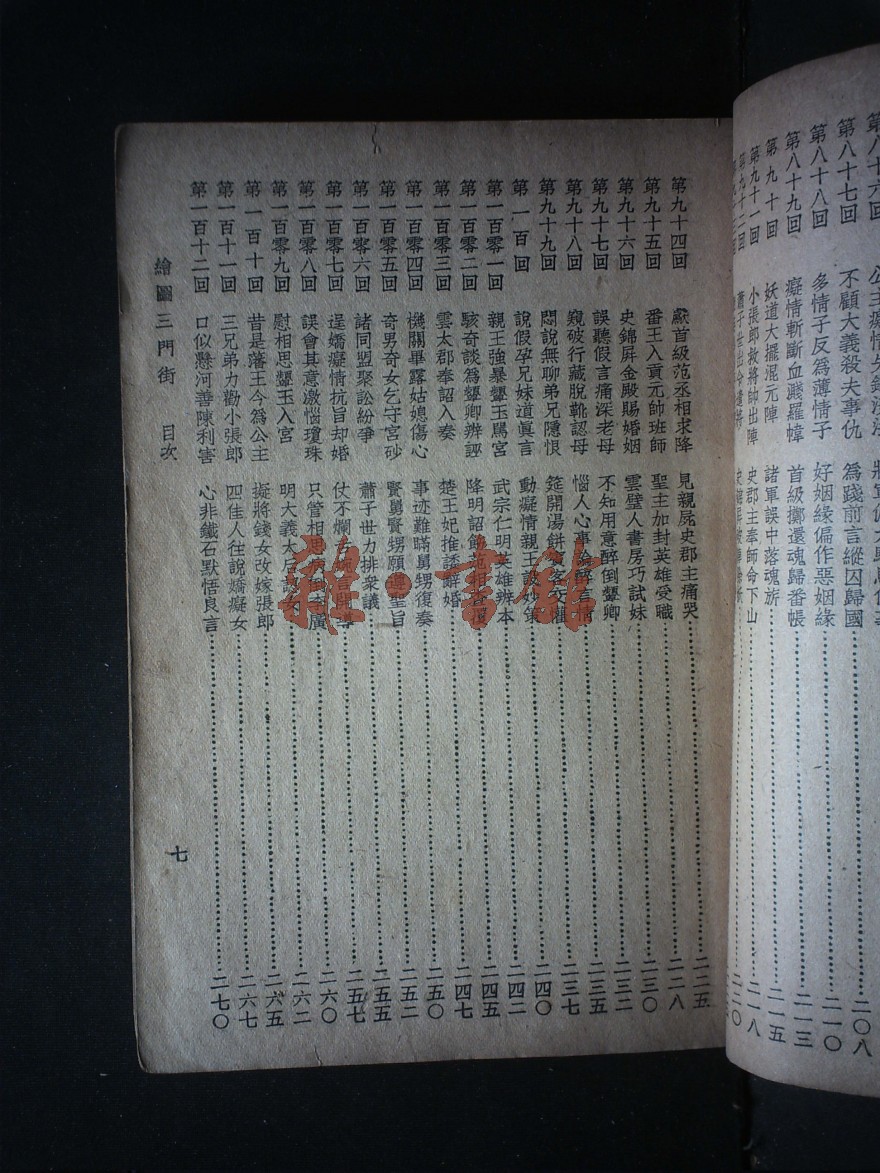 第八十六回
第八十七回 不顧大義殺夫事仇 為踐前言縱囚歸國 二〇八
第八十八回 多情子反為薄情子 好姻緣偏作惡姻緣 二一〇
第八十九回 癡情斬斷血濺羅幃 首級擲還魂歸番帳 二一三
第九十回 妖道大擺混元陣 諸軍誤中落魂旗 二一五
第九十一回 小張郎救將帥出陣 史郡主奉師命下山 二一八
第九十二回 蕭子世出 二二〇
第九十四回 獻首級范丞相求降 見親屍史郡主痛哭 二二五
第九十五回 番王入貢元帥班師 聖主加封英雄受職 二二八
第九十六回 史錦屏金殿賜婚姻 雲璧人書房巧試妹 二三〇
第九十七回 誤聽假言痛深老母 不知用意醉倒顰卿 二三二
第九十八回 窺破行藏脫靴認母 惱人心事論醉言情 二三五
第九十九回 悶說無聊弟兄隱恨 筵開湯餅賓客交權 二三七
第一百回 說假孕兄妹道真言 動癡情親王設妙策 二四〇
第一百零一回 親王強暴顰玉罵宮 武宗仁明英雄辨本 二四二
第一百零二回 駭奇談為顰卿辨誣 降明詔飭范相查覆 二四五
第一百零三回 雲太郡奉詔入奏 楚王妃推諉辭婚 二四七
第一百零四回 機關畢露姑媳傷心 事迹難瞞舅甥復奏 二五〇
第一百零五回 奇男奇女乞守宮砂 賢舅賢甥願遵聖旨 二五二
第一百零六回 諸同盟聚訟紛爭 蕭子世力排衆議 二五五
第一百零七回 逞嬌癡情抗旨却婚 仗不爛舌婉言開導 二五七
第一百零八回 誤會其意激惱瓊珠 只管相思病倒李廣 二六〇
第一百零九回 慰相思顰玉入宮 明大義太后認女 二六二
第一百十回 昔是藩王今為公主 擬將錢女改嫁張郎 二六五
第一百十一回 三兄弟力勸小張郎 四佳人往說嬌癡女 二六七
第一百十二回 口似懸河善陳利害 心非鐵石默悟良言 二七〇
繪圖三門街 目次
七
雜·書館